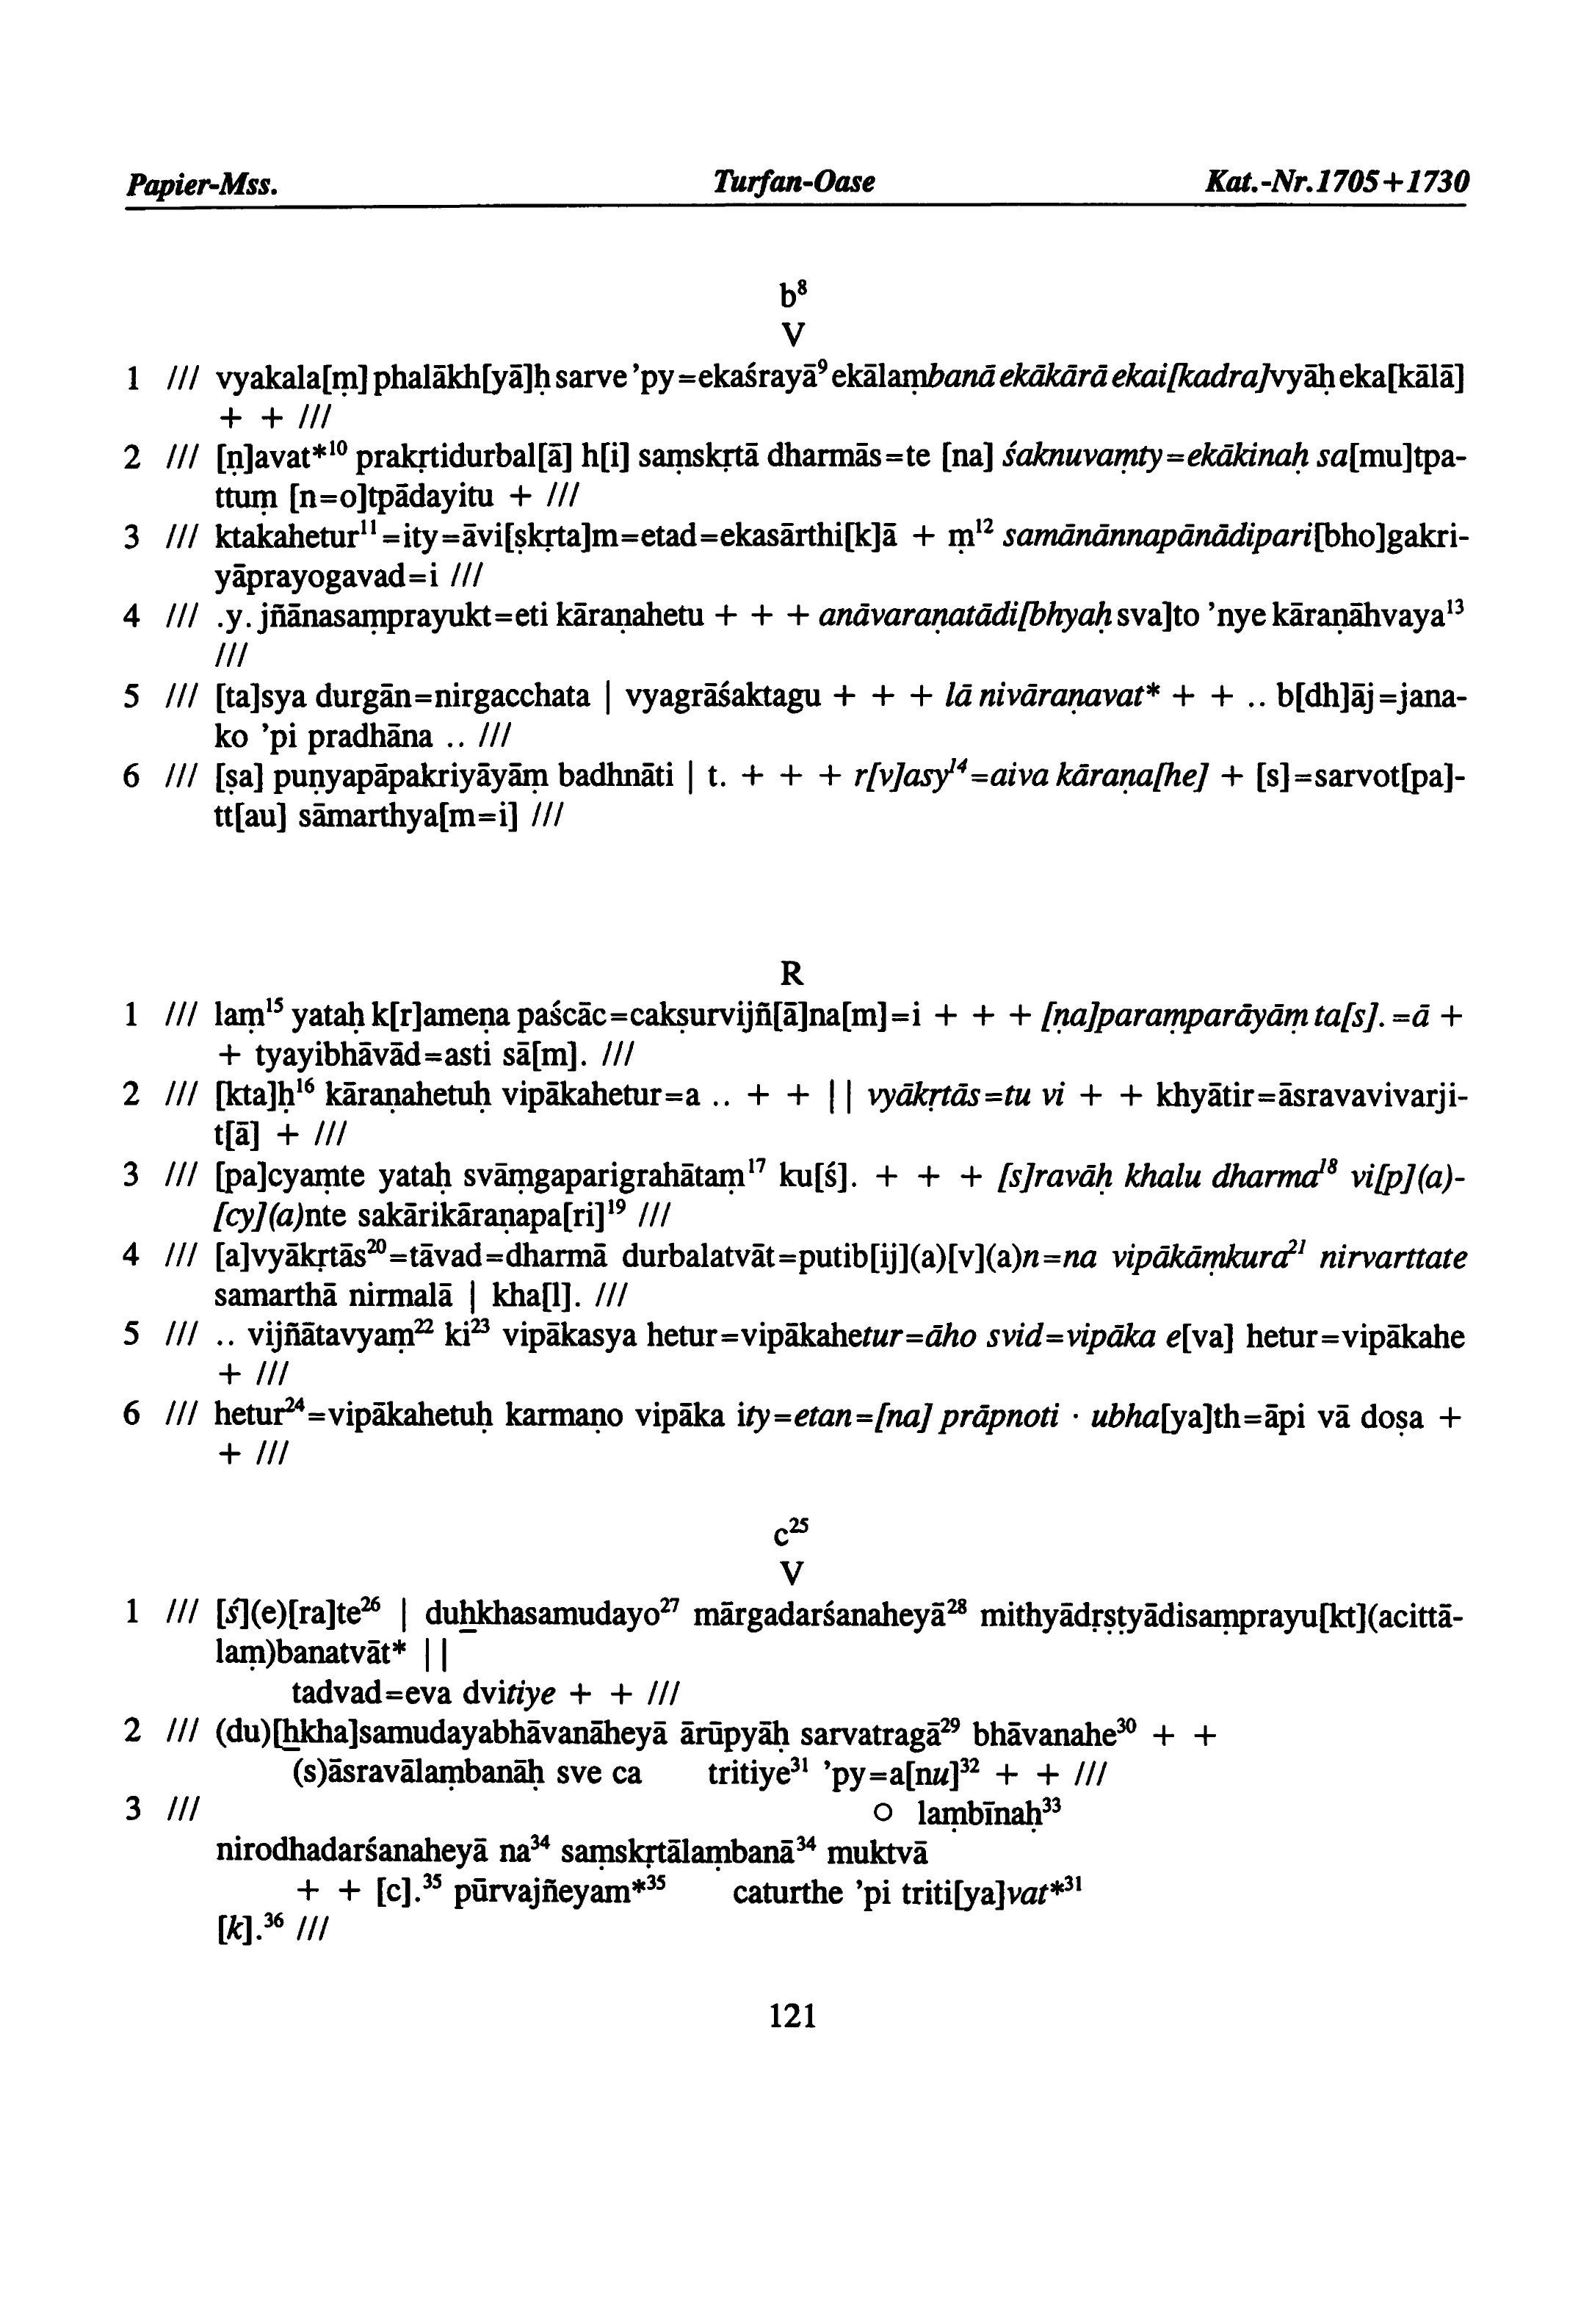 Papier-Mss. Turfan-Oase Kat.-Nr.1705+1730
b⁸
V
1 /// vyakala[ṃ] phalākh[yā]ḥ sarve ’py=ekaśrayā⁹ ekālaṃbanā ekākārā ekai[kadra]vyāḥ eka[kālā]
+ + ///
2 /// [ṇ]avat*¹⁰ prakṛtidurbal[ā] h[i] saṃskṛtā dharmās=te [na] śaknuvaṃty=ekākinaḥ sa[mu]tpa-
ttuṃ [n=o]tpādayitu + ///
3 /// ktakahetur¹¹=ity=āvi[ṣkṛta]m=etad=ekasārthi[k]ā + ṃ¹² samānānnapānādipari[bho]gakri-
yāprayogavad=i ///
4 /// .y. jñānasaṃprayukt=eti kāraṇahetu + + + anāvaraṇatādi[bhyaḥ sva]to ’nye kāraṇāhvaya¹³
///
5 /// [ta]sya durgān=nirgacchata | vyagrāśaktagu + + + lā nivāraṇavat* + + .. b[dh]āj=jana-
ko ’pi pradhāna .. ///
6 /// [ṣa] puṇyapāpakriyāyāṃ badhnāti | t. + + + r[v]asy¹⁴=aiva kāraṇa[he] + [s]=sarvot[pa]-
tt[au] sāmarthya[m=i] ///
R
1 /// laṃ¹⁵ yataḥ k[r]ameṇa paścāc=cakṣurvijñ[ā]na[m]=i + + + [ṇa]paraṃparāyāṃ ta[s]. =ā +
+ tyayibhāvād=asti sā[m]. ///
2 /// [kta]ḥ¹⁶ kāraṇahetuḥ vipākahetur=a .. + + || vyākṛtās=tu vi + + khyātir=āsravavivarji-
t[ā] + ///
3 /// [pa]cyaṃte yataḥ svāṃgaparigrahātaṃ¹⁷ ku[ś]. + + + [s]ravāḥ khalu dharma¹⁸ vi[p](a)-
[cy](a)nte sakārikāraṇapa[ri]¹⁹ ///
4 /// [a]vyākṛtās²⁰=tāvad=dharmā durbalatvāt=putib[ij](a)[v](a)n=na vipākāṃkura²¹ nirvarttate
samarthā nirmalā | kha[l]. ///
5 /// .. vijñātavyaṃ²² ki²³ vipākasya hetur=vipākahetur=āho svid=vipāka e[va] hetur=vipākahe
+ ///
6 /// hetur²⁴=vipākahetuḥ karmaṇo vipāka ity=etan=[na] prāpnoti · ubha[ya]th=āpi vā doṣa +
+ ///
c²⁵
V
1 /// [ś](e)[ra]te²⁶ | duẖkhasamudayo²⁷ mārgadarśanaheyā²⁸ mithyādṛṣṭyādisaṃprayu[kt](acittā-
laṃ)banatvāt* ||
tadvad=eva dvitiye + + ///
2 /// (du)[ẖkha]samudayabhāvanāheyā ārūpyāḥ sarvatragā²⁹ bhāvanahe³⁰ + +
(s)āsravālaṃbanāḥ sve ca tritiye³¹ ’py=a[nu]³² + + ///
3 /// ○ laṃbīnaḥ³³
nirodhadarśanaheyā na³⁴ saṃskṛtālaṃbanā³⁴ muktvā
+ + [c].³⁵ pūrvajñeyam*³⁵ caturthe ’pi triti[ya]vat*³¹
[k].³⁶ ///
121